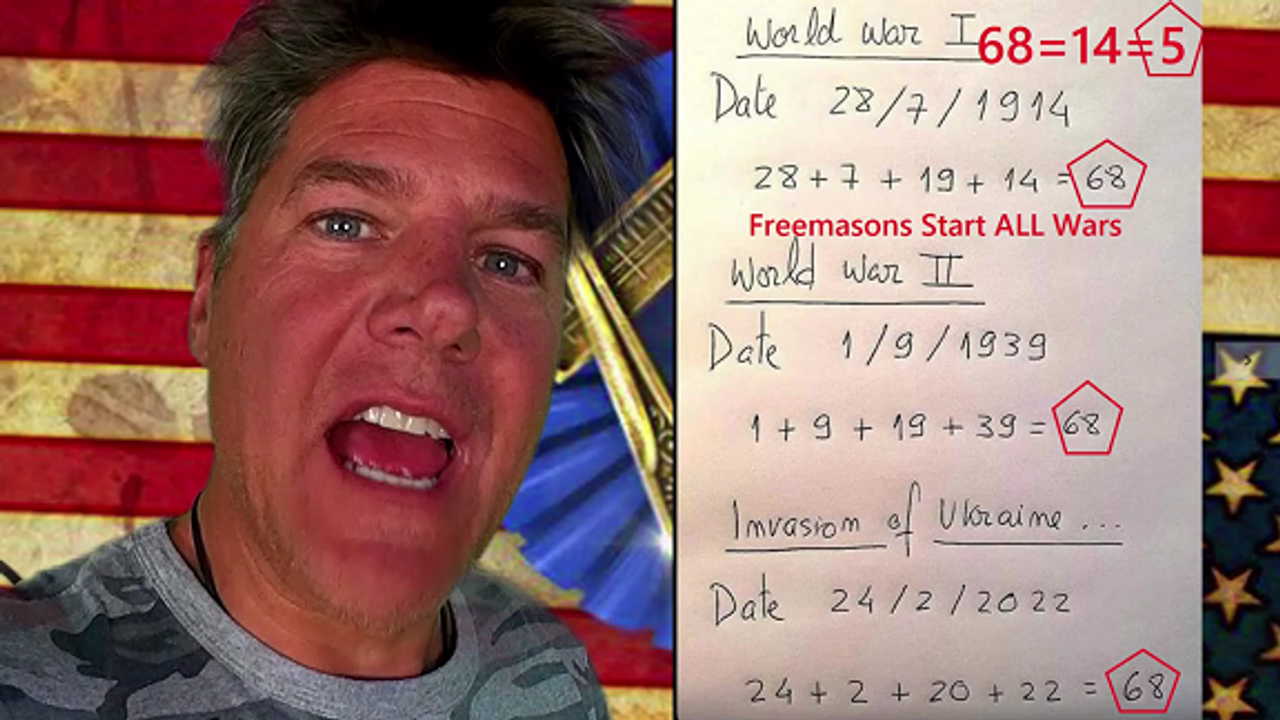 World War I 68=14=5
Date 28/7/1914
28 + 7 + 19 + 14 = 68
Freemasons Start ALL Wars
World War II
Date 1/9/1939
1 + 9 + 19 + 39 = 68
Invasion of Ukraine ...
Date 24/2/2022
24 + 2 + 20 + 22 = 68